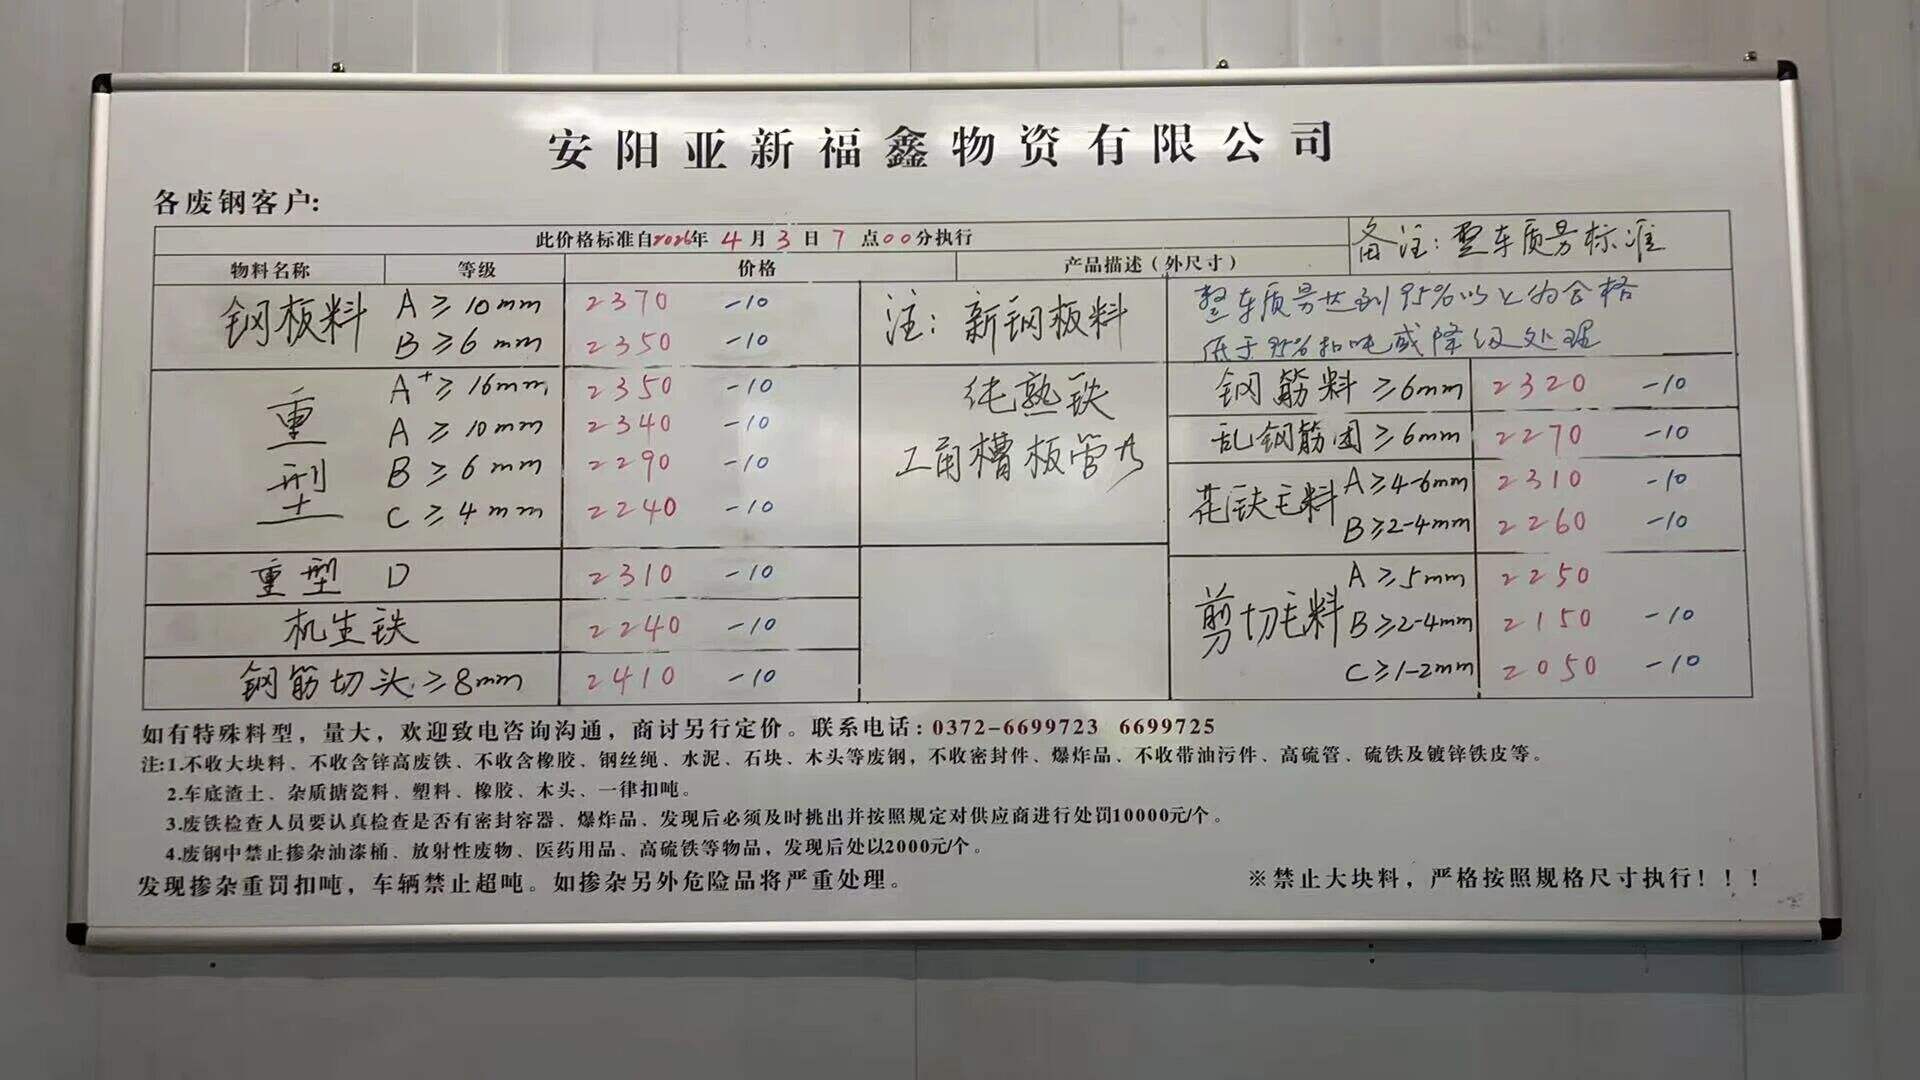 安阳亚新福鑫物资有限公司
各废钢客户:
此价格标准自2026年 4 月 3 日 7 点00分执行
备注: 整车质另标准
物料名称 等级 价格 产品描述(外尺寸)
钢板料 A ≥ 10mm 2370 -10
B ≥ 6 mm 2350 -10
注: 新钢板料
整车质另达到95%以上为合格
低于95%扣吨或降级处理
重型 A+ ≥ 16mm 2350 -10
A ≥ 10mm 2340 -10
B ≥ 6mm 2290 -10
C ≥ 4mm 2240 -10
纯熟铁
工角槽板管
重型 D 2310 -10
机生铁 2240 -10
钢筋切头 ≥8mm 2410 -10
钢筋料 ≥6mm 2320 -10
乱钢筋团 ≥6mm 2270 -10
花铁毛料 A≥4-6mm 2310 -10
B≥2-4mm 2260 -10
剪切毛料 A ≥5mm 2250
B≥2-4mm 2150 -10
C≥1-2mm 2050 -10
如有特殊料型，量大，欢迎致电咨询沟通，商讨另行定价。联系电话: 0372-6699723 6699725
注:1.不收大块料、不收含锌高废铁、不收含橡胶、钢丝绳、水泥、石块、木头等废钢，不收密封件、爆炸品、不收带油污件、高硫管、硫铁及镀锌铁皮等。
2.车底渣土、杂质搪瓷料、塑料、橡胶、木头、一律扣吨。
3.废铁检查人员要认真检查是否有密封容器、爆炸品、发现后必须及时挑出并按照规定对供应商进行处罚10000元/个。
4.废钢中禁止掺杂油漆桶、放射性废物、医药用品、高硫铁等物品，发现后处以2000元/个。
发现掺杂重罚扣吨，车辆禁止超吨。如掺杂另外危险品将严重处理。
※禁止大块料，严格按照规格尺寸执行！！！